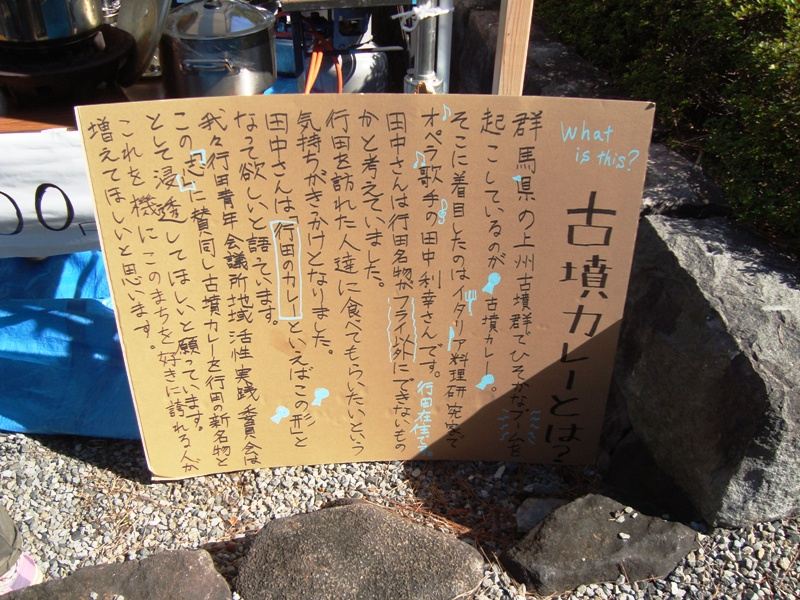 What
is this?
古墳カレーとは?
群馬県の上州古墳群でひそかなブームを
起こしているのが、古墳カレー。
そこに着目したのはイタリア料理研究家で
オペラ歌手の田中利幸さんです。行田在住です
田中さんは行田名物がフライ以外にできないもの
かと考えていました。
行田を訪れた人達に食べてもらいたいという
気持ちがきっかけとなりました。
田中さんは「行田のカレーといえばこの形」と
なって欲しいと語ています。
我々行田青年会議所地域活性実践委員会は
この志に賛同し古墳カレーを行田の新名物と
として浸透してほしいと願っています。
これを機にこのまちを好きに誇れる人が
増えてほしいと思います。
00